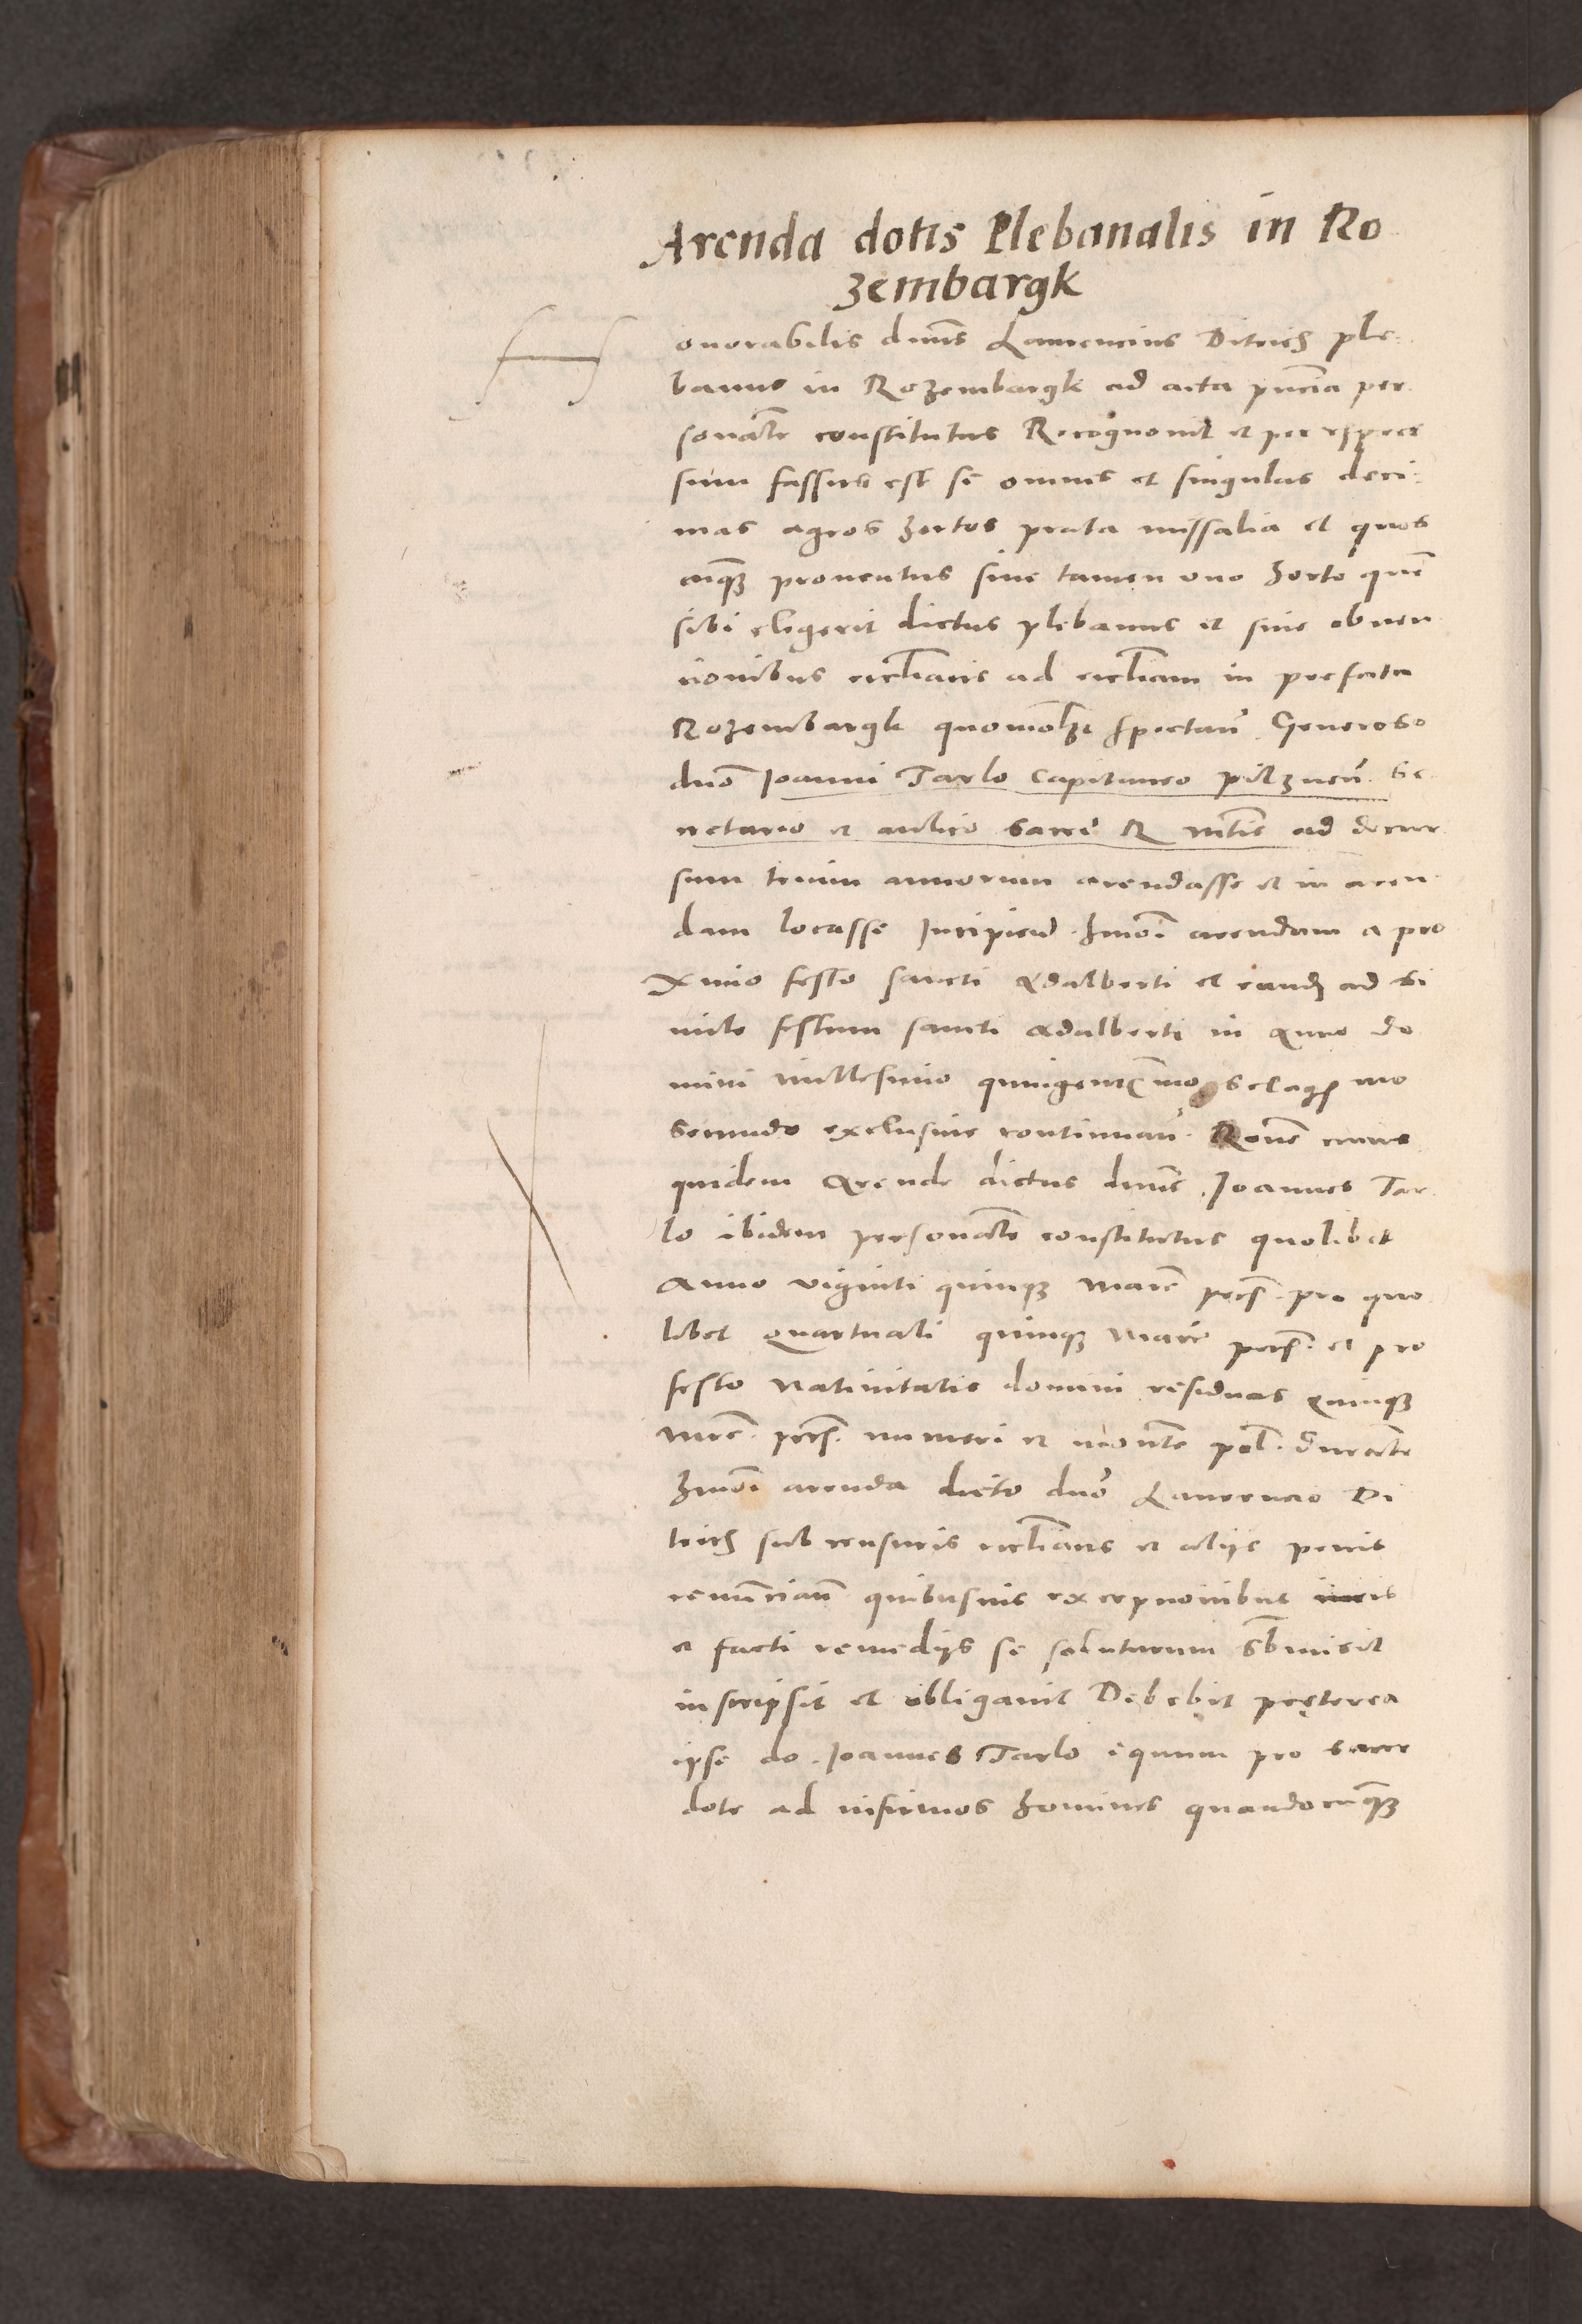 Arenda dotis Plebanalis in Ro
zembargk
H onorabilis dnus Laurencius Ditrich ple
banus in Rozembargk ad acta pncia per
sonalr constitutus Recognovit et per expres
sum fassus est se omnes et singulas deci
mas agros hortos prata missalia et quos
cuqz proventus sive tamen uno horto que
sibi elegerit dictus plebanus et sine obven
cionibus ecclianis ad eccliam in prefata
Rozembargk quomolzt spectan Generoso
dno Joanni Tarlo Capitaneo pilznen se
cretario et aulico sacre R mtis ad decur
sum trium annorum arendasse et in aren
dam locasse Incipien hmoi arendam a pro
ximo festo sancti Adalberti et eand ad si
mile festum sancti Adalberti in Anno do
mini millesimo quingentesimo sexag mo
secundo exclusive continuan Rone cuius
quidem Arende dictus dnus Joannes Tar
lo ibidem personalr constitutus quolibet
Anno viginti quinqz marc pecs pro quo
libet quartuali quinqz marc pecs et pro
festo nativitatis domini residuas quinqz
mrc pecs numeri et monete pol durante
hmoi arenda dicto dno Laurencio Di
trich sub censuris ecclianis et aliis penis
renuncian quibusvis excepcionibus iuris
et facti remediis se soluturum sbmisit
inscripsit et obligavit Debebit preterea
ipse do Joannes Tarlo equum pro sacer
dote ad infirmos homines quandocuqz